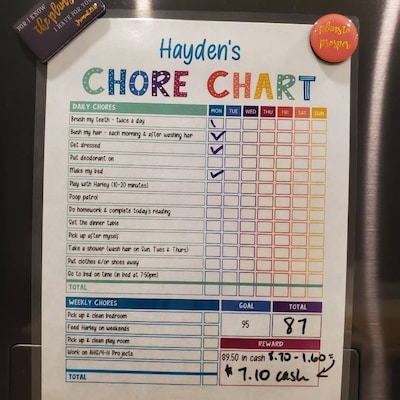 FOR I KNOW
the plans
I HAVE FOR YOU
plans to
prosper
Hayden's
CHORE CHART
DAILY CHORES MON TUE WED THU FRI SAT SUN
Brush my teeth - twice a day
Bush my hair - each morning & after washing hair
Get dressed
Put deodorant on
Make my bed
Play with Harley (10-20 minutes)
Poop patrol
Do homework & complete today's reading
Set the dinner table
Pick up after myself
Take a shower (wash hair on Sun, Tues & Thurs)
Put clothes &/or shoes away
Go to bed on time (in bed at 7:50pm)
TOTAL
WEEKLY CHORES GOAL TOTAL
Pick up & clean bedroom
Feed Harley on weekends
95 87
Pick up & clean play room
REWARD
Work on AHG/4-H Projects
$9.50 in cash 8.70-1.60=
$7.10 cash
TOTAL